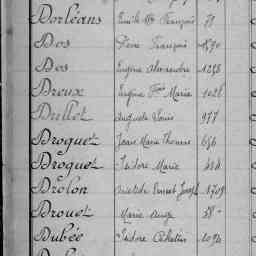 Dorléans Emile Mie François 78
Dos Pierre François 1890
Dos Eugène Alexandre 1278
Dreux Eugène Fois Marie 1028
Drillet Auguste Louis 977
Droguet Jean Marie Thomas 656
Droguet Isidore Marie 484
Drôlon Aristide Ernest Joseph 1709
Drouet Marie Ange 58
Dubée Isidore Célestin 1094